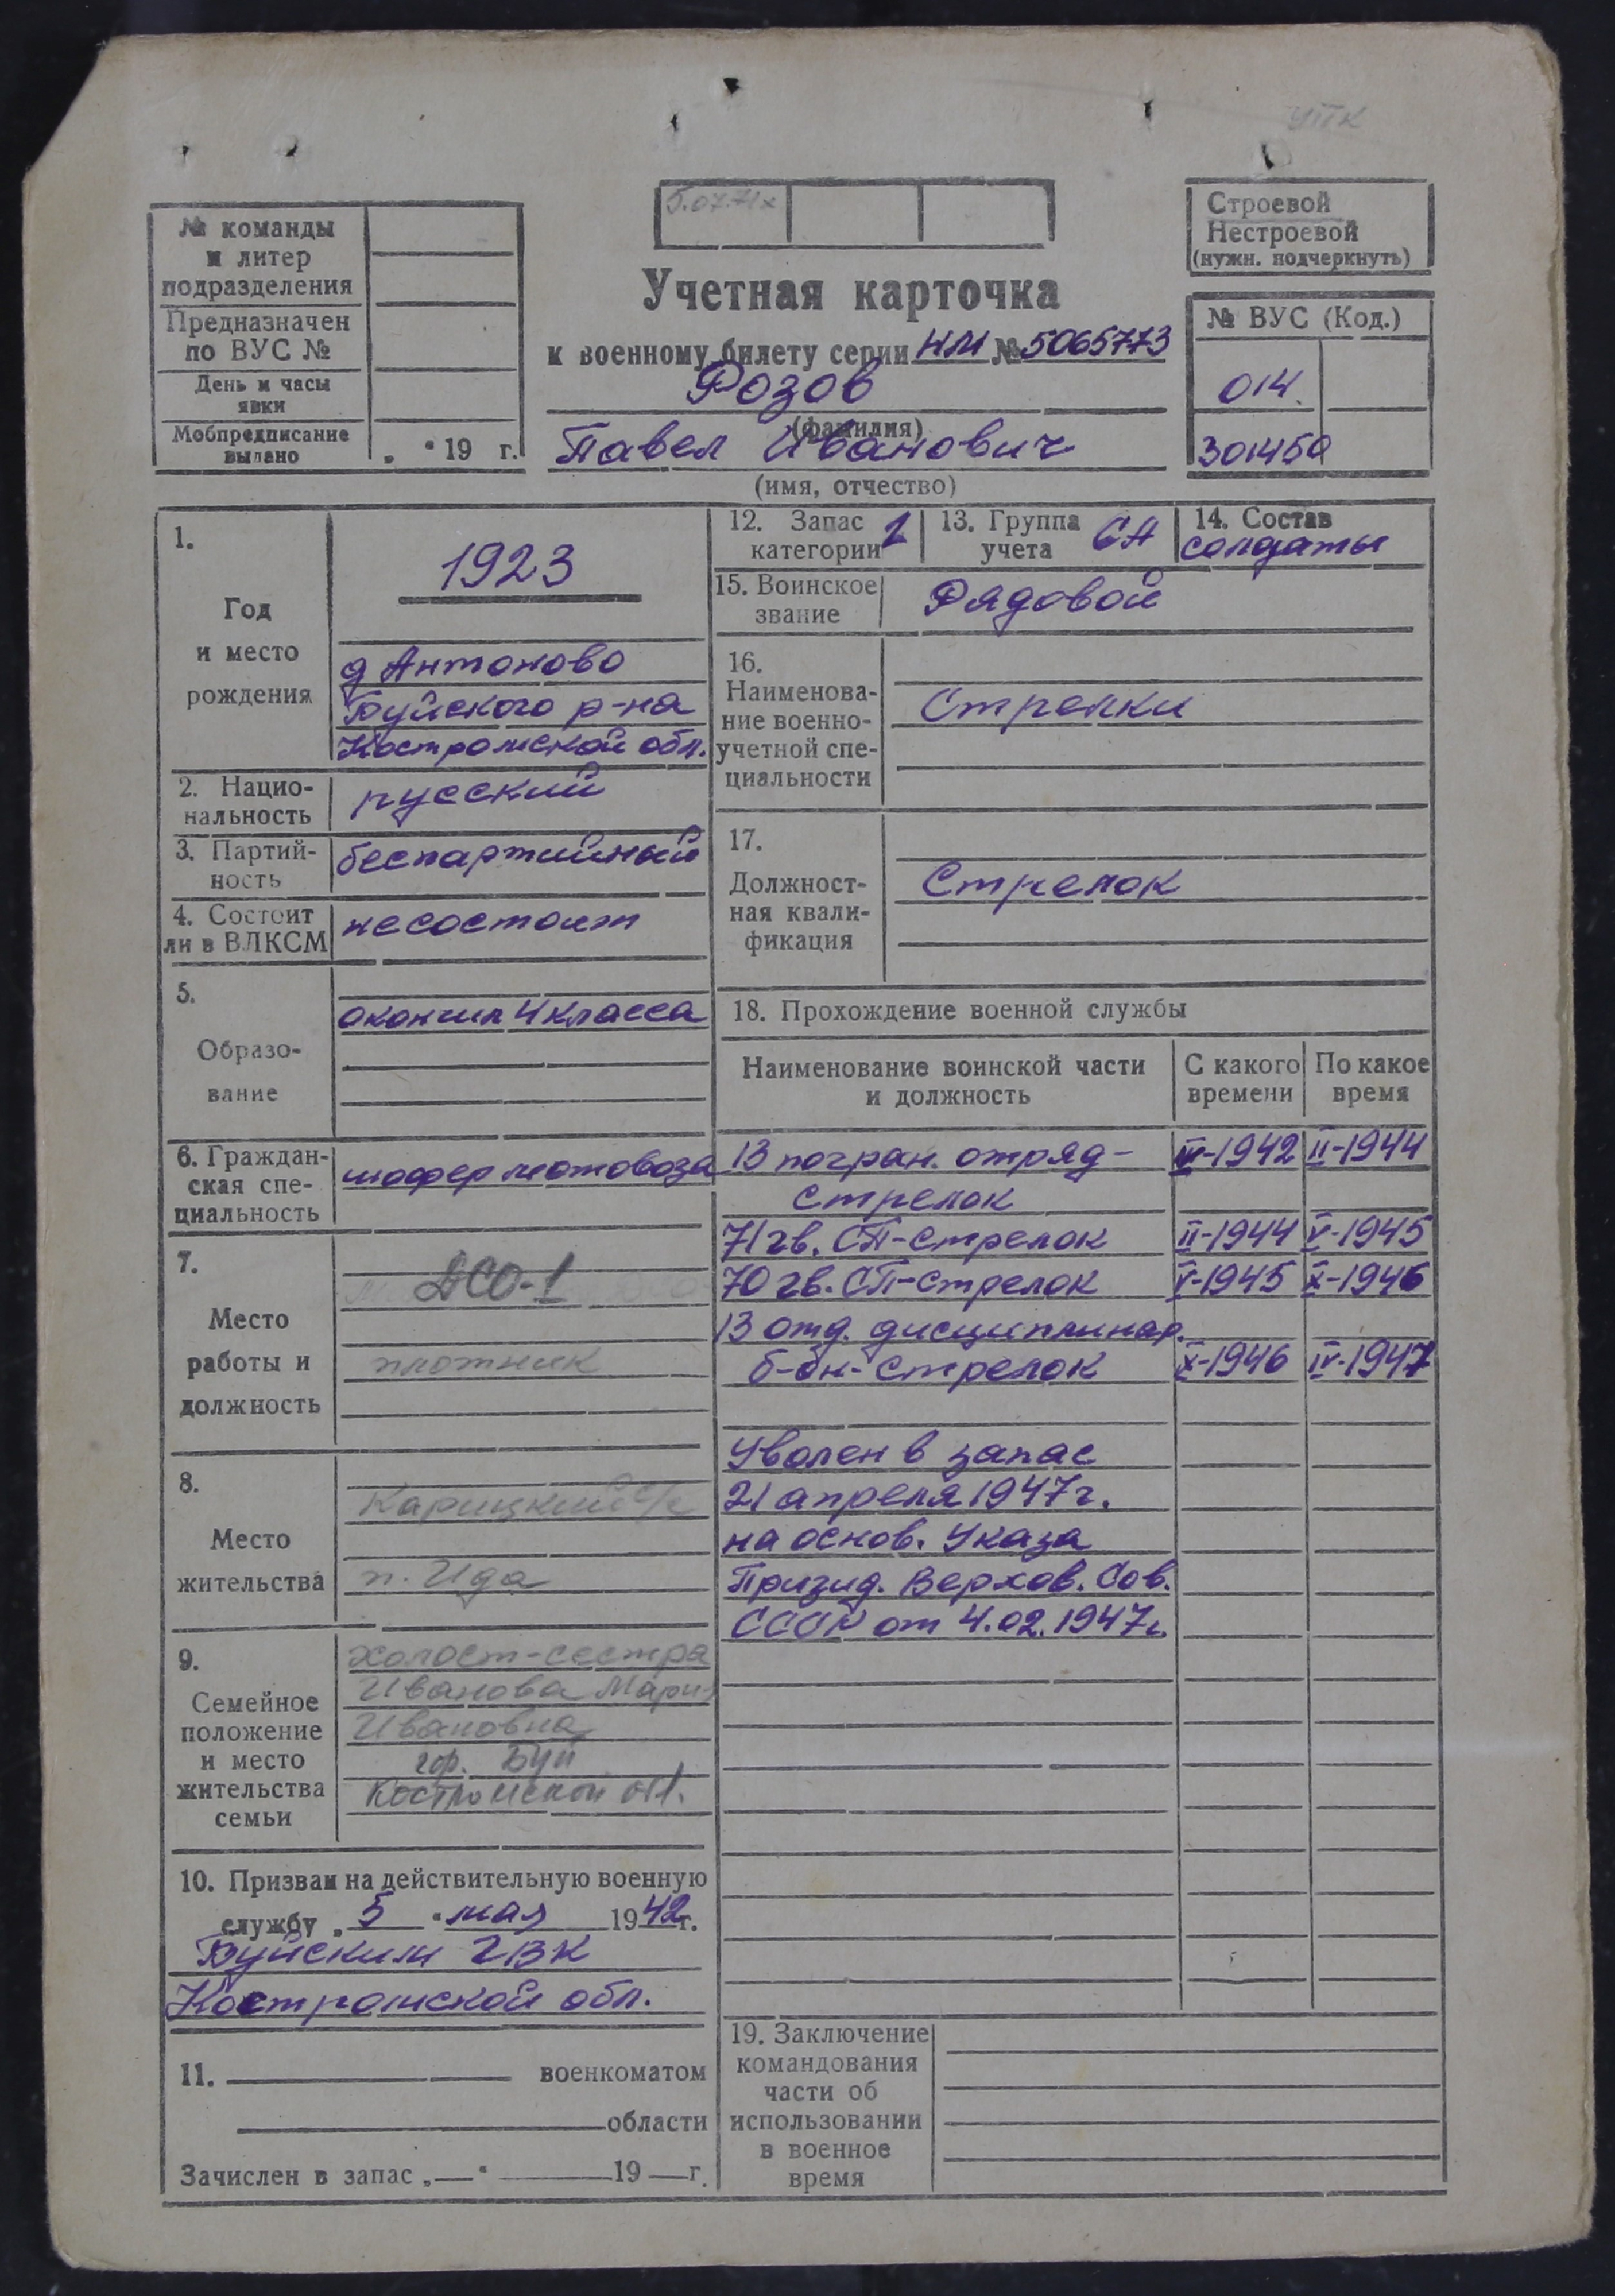 УПК
5.07.71х
№ команды
и литер
подразделения
Предназначен
по ВУС №
День и часы
явки
Мобпредписание
вылано
„ “ 19 г.
Строевой
Нестроевой
(нужн. подчеркнуть)
№ ВУС (Код.)
014.
301450
Учетная карточка
к военному билету серии НМ № 5065773
Розов
(фамилия)
Павел Иванович
(имя, отчество)
1.
Год
и место
рождения
1923
д Антоново
Буйского р-на
Костромской обл.
2. Нацио-
нальность
русский
3. Партий-
ность
беспартийный
4. Состоит
ли в ВЛКСМ
несостоит
5.
Образо-
вание
окончил 4 класса
6. Граждан-
ская спе-
циальность
шофер мотовоза
7.
Место
работы и
должность
ДСО-1
плотник
8.
Место
жительства
Карицкий с/с
п. Ида
9.
Семейное
положение
и место
жительства
семьи
холост-сестра
Иванова Мари-
Ивановна
гор. Буй
Костромской обл.
10. Призван на действительную военную
службу „ 5 “ мая 1942г.
Буйским ГВК
Костромской обл.
11. военкоматом
области
Зачислен в запас „—“ 19 —г.
12. Запас
категории 1
13. Группа
учета СА
14. Состав
солдаты
15. Воинское
звание
Рядовой
16.
Наименова-
ние военно-
учетной спе-
циальности
Стрелки
17.
Должност-
ная квали-
фикация
Стрелок
18. Прохождение военной службы
Наименование воинской части
и должность
С какого
времени
По какое
время
13 погран. отряд- 1942 II-1944
стрелок
71 гв. СП-стрелок II-1944 V-1945
70 гв. СП-стрелок V-1945 X-1946
13 отд. дисциплинар.
б-он-стрелок X-1946 IV-1947
Уволен в запас
21 апреля 1947г.
на основ. Указа
Призид. Верхов. Сов.
СССР от 4.02.1947г.
19. Заключение
командования
части об
использовании
в военное
время